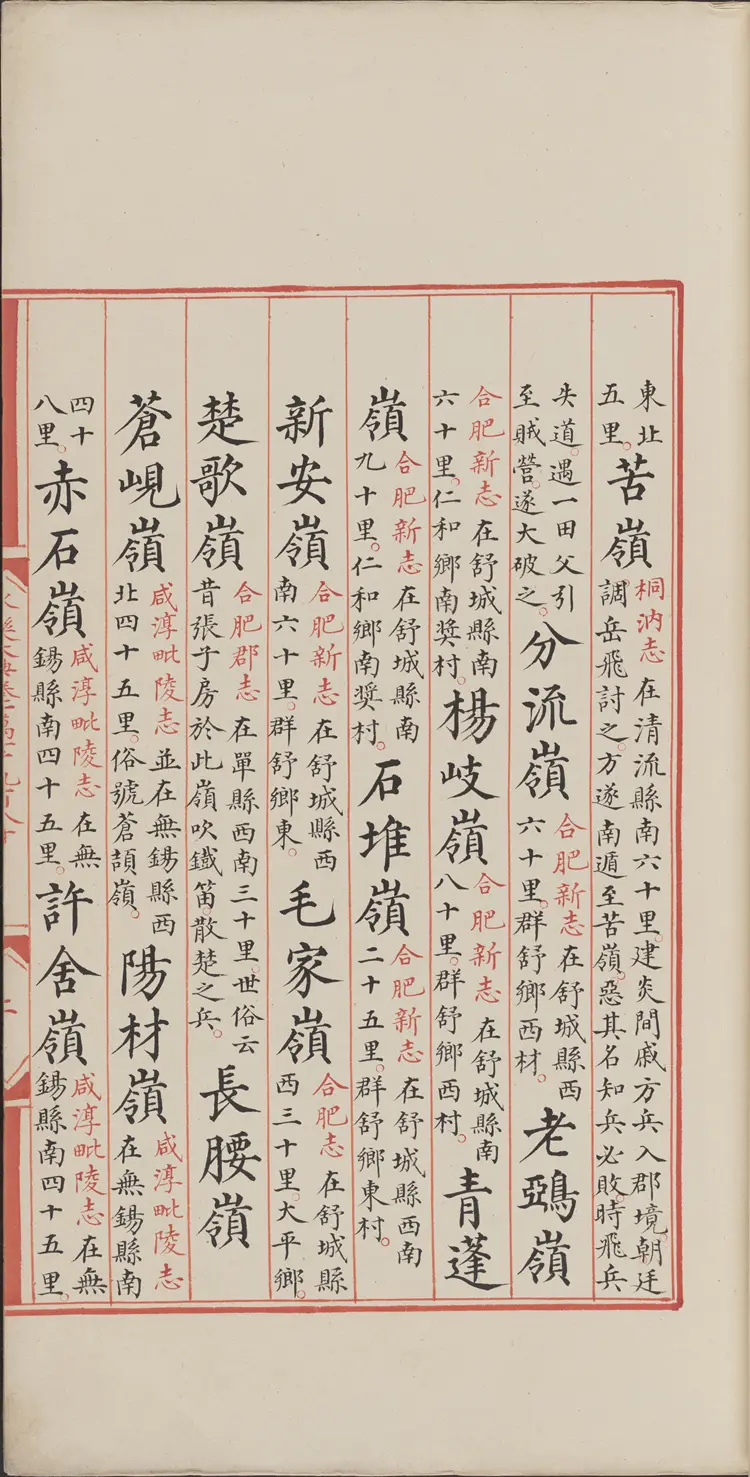 東北五里。苦嶺桐汭志在清流縣南六十里。建炎間戚方兵入郡境。朝廷調岳飛討之。方遂南遁至苦嶺。惡其名知兵必敗。時飛兵
失道。遇一田父引至賊營。遂大破之。分流嶺合肥新志在舒城縣西六十里。群舒鄉西材。老鵶嶺
合肥新志在舒城縣南六十里。仁和鄉南奨村。楊岐嶺合肥新志在舒城縣南八十里。群舒鄉西村。青蓬
嶺合肥新志在舒城縣南九十里。仁和鄉南奨村。石堆嶺合肥新志在舒城縣西南二十五里。群舒鄉東村。
新安嶺合肥新志在舒城縣西南六十里。群舒鄉東。毛家嶺合肥志在舒城縣西三十里。大平鄉。
楚歌嶺合肥郡志在單縣西南三十里。世俗云昔張子房於此嶺吹鐵笛。散楚之兵。長腰嶺
蒼峴嶺咸淳毗陵志並在無錫縣西北四十五里。俗號蒼頡嶺。陽材嶺咸淳毗陵志在無錫縣南
四十八里。赤石嶺咸淳毗陵志在無錫縣南四十五里。許舍嶺咸淳毗陵志在無錫縣南四十五里。